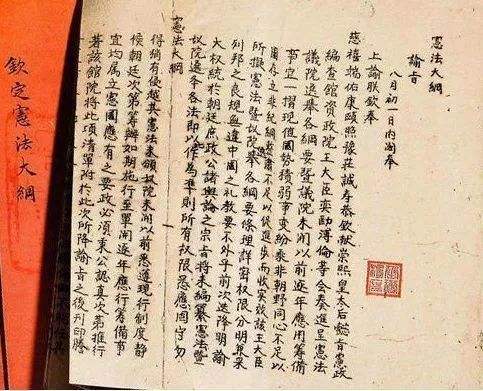 欽定憲法大綱
憲法大綱
諭旨
八月初一日內閣奉
上諭朕欽奉
慈禧端佑康頤照豫莊誠壽恭欽獻崇熙皇太后懿旨憲政
編查館資政院王大臣奕劻溥倫等會奏進呈憲法
議院選舉各綱要暨議院未開以前逐年應用籌備
事宜一摺現值國勢積弱事變紛乘非朝野同心不足以
圖存立非紀綱整肅不足以促進步而收實效該王大臣
所擬憲法暨議院選舉各綱要條理詳密權限分明兼采
列邦之良規無違中國之禮教要不外乎前次迭降明諭
大權統於朝廷庶政公諸輿論之宗旨將來編纂憲法暨
議院選舉各法即以作為準則所有權限悉應固守勿
憲法大綱
得稍有侵越其憲法未頒議院未開以前悉遵現行制度靜
候朝廷次第籌辦如期施行至單開逐年應行籌備事
宜均屬立憲國應有之要政必須秉公認真次第推行
著該館院將此項清單附於此次所降諭旨之後刊印謄